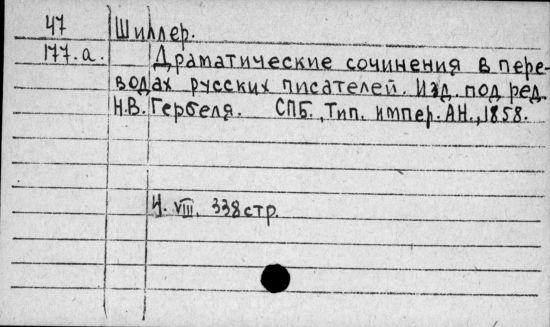 47 Шиллер.
177.а. Драматические сочинения в пере-
водах русских писателей. Изд. под ред.
Н.В. Гербеля. СПБ., Тип. импер. АН., 1858.
Ч. VIII. 338 стр.